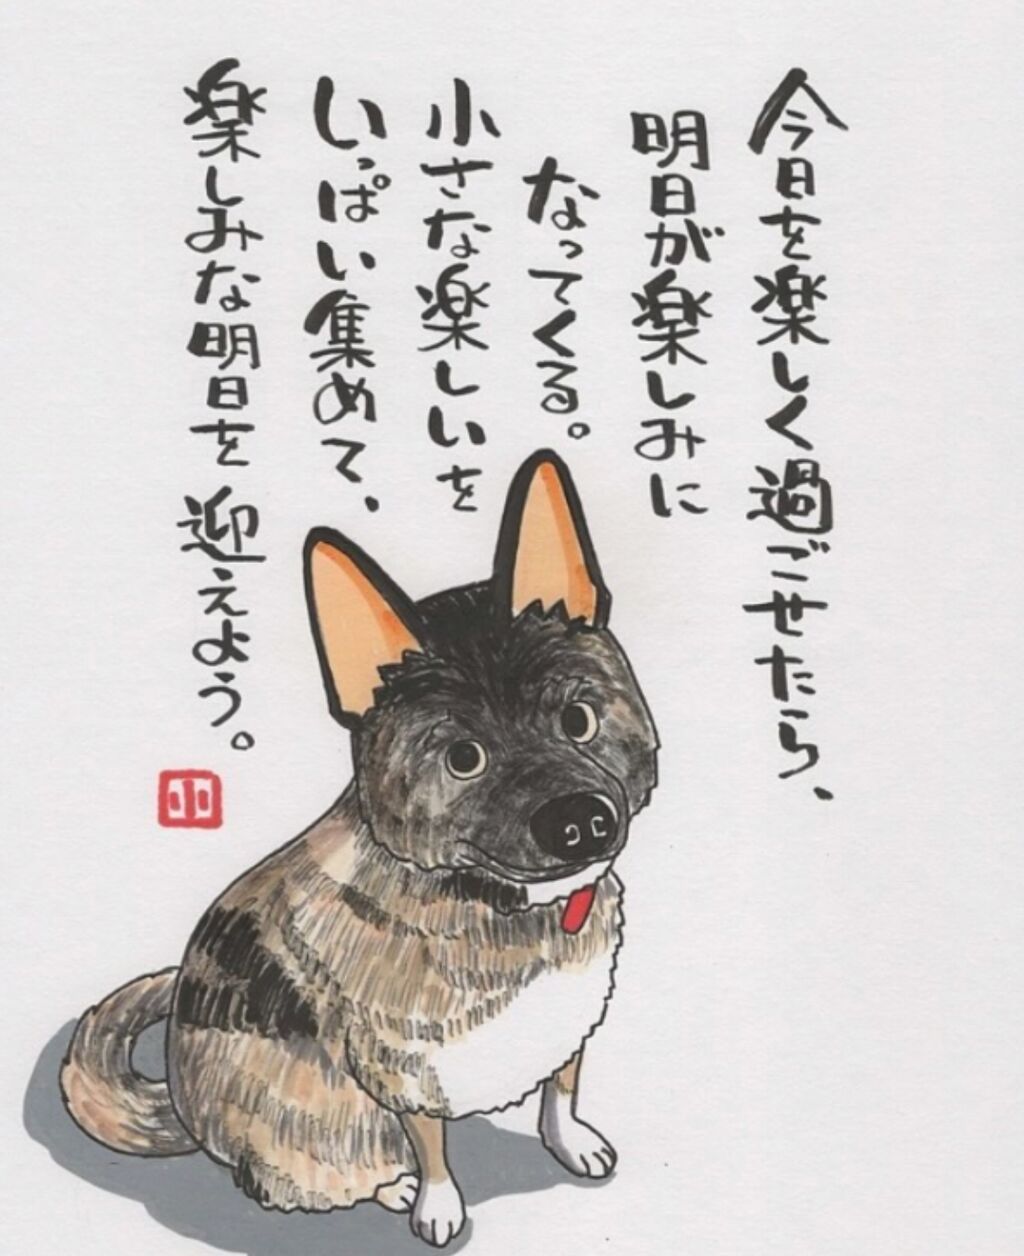 今日を楽しく過ごせたら、
明日が楽しみに
なってくる。
小さな楽しいを
いっぱい集めて、
楽しみな明日を迎えよう。
小